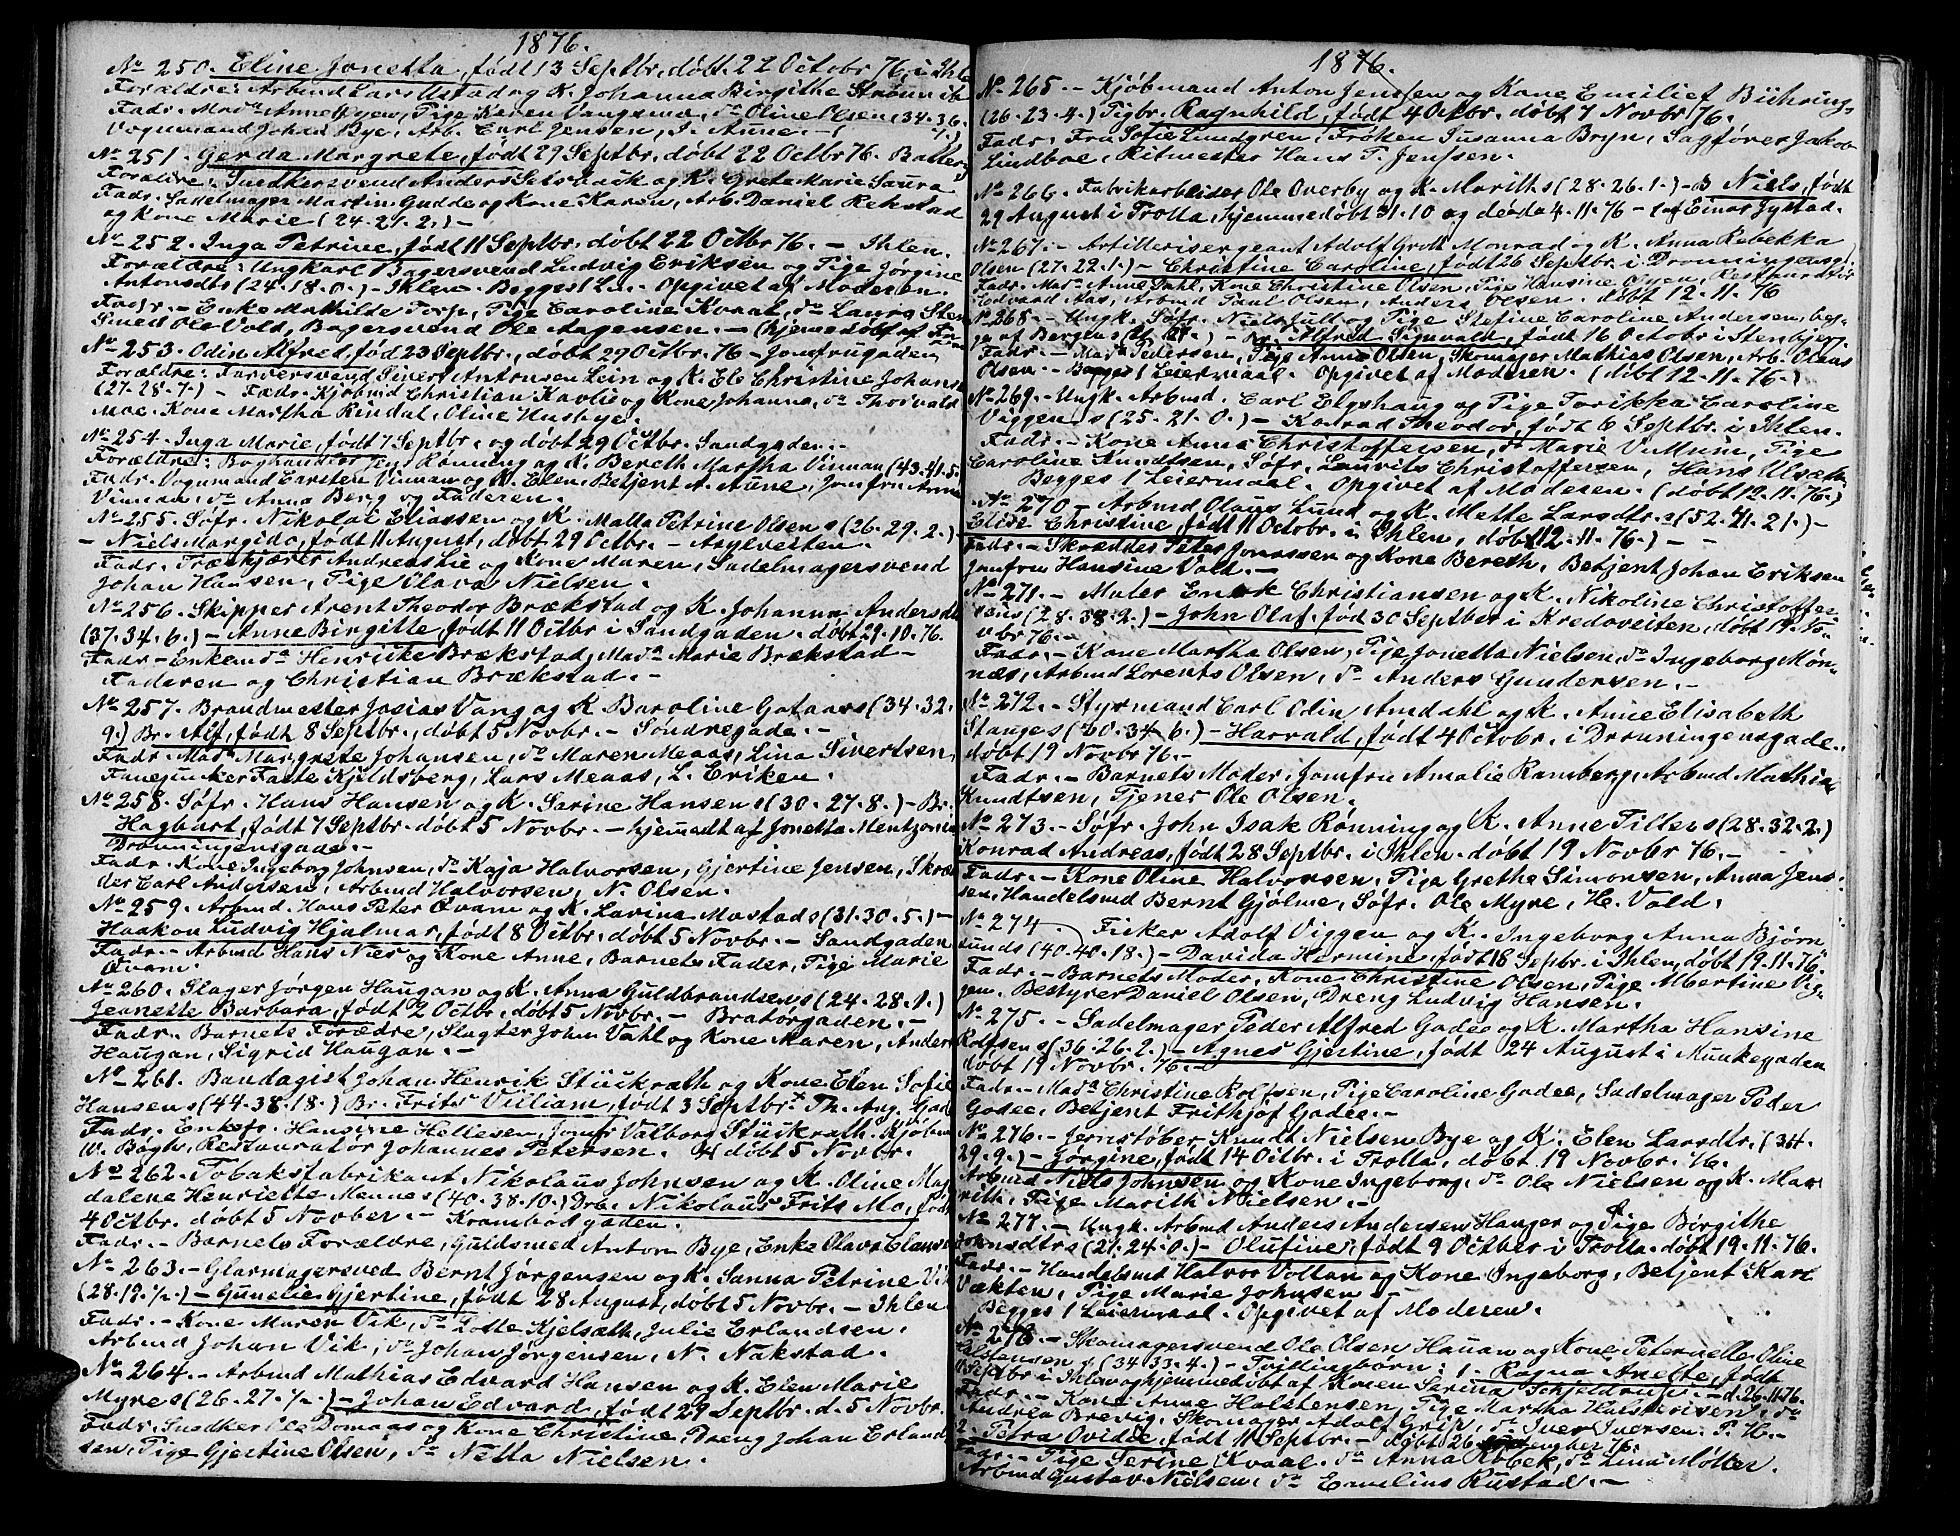 1876.
No 250. Eline Jonetta, født 13 Septbr, døbt 22 Octobr 76, i Ihle
Forældre: Arbmd Lars Ustad og K. Johanna Birgithe
Fadr. Mada Anne Øyen, Pige Karen Vangsmo, do Oline Olsen (34.36.
Vognmand Johan Bye, Arb. Carl Jensen, J. Aune. –
No 251. Gerda Margrete, født 29 Septbr, døbt 22 Octbr 76.
Forældre: Snedkersvend Anders Selsbak og K. Grete Marie Saura
Fadr. Sadelmager Martin Gudde og Kone Karen, Arb. Daniel Rekstad
og Kone Marie (24.27.2.) –
No 252. Inga Petrine, født 11 Septbr. døbt 22 Octbr 76. – Ihlen.
Forældre: Ungkarl Bagersvend Ludvig Eriksen og Pige Jørgine
Antonsdts (24.18.0.) – Ihlen. Begges 1 Lm. Opgivet af Moderen.
Fadr. – Enke Mathilde Torp, Pige Caroline Kvaal, do Laura Sten
Smed Ole Vold, Bagersvend Ole Aagensen. – (hjemedøbt af
No 253. Odin Alfred, fød 23 Septbr, døbt 29 Octbr 76 – Jomfrugaden
Forældre: Farversvend Sivert Antonsen Lein og K. Ele Christine Johans
(27.28.7.) – Fadr. Kjøbmd Christian Kavlie og Kone Johanna, do Thorvald
Moe. Kone Martha Rindal, Oline Husbye.
No 254. Inga Marie, født 7 Septbr, og døbt 29 Octbr. Sandgaden. –
Forældre: Boghandler Jens Rønning og K. Bereth Martha Vinnan (43.41.5.
Fadr. Vognmand Carsten Vinnan og K. Elen, Betjent A. Aune, Jomfru Anna
Vinnan, do Anna Berg og Faderen.
No 255. Søfr. Nikolai Eliassen og K. Malla Petrine Olsens (26.29.2.)
– Niels Margido, født 11 August, døbt 29 Octbr. – Asylveiten
Fadr. Træskjærer Andreas Lie og Kone Maren, Sadelmagersvend
Johan Hansen, Pige Olava Nielsen.
No 256. Skipper Arent Theodor Brækstad og K. Johanna Andersdt
(37.34.6.) – Anne Birgitte, født 11 Octbr i Sandgaden. døbt 29.10.76.
Fadr – Enkemda Henrikke Brækstad, Mada Marie Brækstad –
Faderen og Christian Brækstad. –
No 257. Brandmester Josias Vang og K. Baroline Gataas (34.32.
9.) Br. Alf, født 8 Septbr., døbt 5 Novbr. – Søndregade. –
Fadr. Mada Margrete Johansen, do Maren Meaas, Lina Sivertsen,
Fanejunker Faste Kjeldsberg, Lars Meaas, L. Eriken.
No 258. Søfr. Hans Hansen og K. Sarine Hansens (30.27.8.) – Br.
Hagbart, født 7 Septbr. døbt 5 Novbr. – hjemedt af Jonetta Mentzoni
Dronningensgade. –
Fadr. Kone Ingeborg Johnsen, do Kaja Halvorsen, Gjertine Jensen, Skræ
der Carl Andersen, Arbmd Halvorsen, N. Olsen.
No 259. Arbmd. Hans Peter Qvam og K. Lavina Mostads (31.30.5.) –
Haakon Ludvig Hjalmar, født 8 Octbr. døbt 5 Novbr. – Sandgaden
Fadr. – Arbmd Hans Nies og Kone Anne, Barnets Fader, Pige Marie
Qvam.
No 260. Slager Jørgen Haugan og K. Anna Guldbrandsens (24.28.1.)
Jeanette Barbara, født 2 Octbr, døbt 5 Novbr. – Bratørgaden. –
Fadr. Barnets Forædre, Slagter John Vahl og Kone Maren, Anders
Haugan, Sigrid Haugan. –
No 261. Bandagist Johan Henrik Stückrath og Kone Elen Sofie
Hansens (44.38.18.) Br. Frits Villiam, født 3 Septbr. Th. Aug. Gad
Fadr. Enkefr. Hansine Hellesen, Jomfr Valborg Stückrath, Kjøbm
W. Bøgh, Restauratør Johannes Petersen. døbt 5 Novbr.
No 262. Tobaksfabrikant Nikolaus Johnsen og K. Oline Mag
dalene Henriette Mennes (40.38.10.) Drb. Nikolaus Frits Mo, født
4 Octbr. døbt 5 Novber. – Krambodgaden.
Fadr. – Barnets Forældre, Guldsmed Anton Bye, Enke Olava Clausen
No 263. – Glarmagersved Bernt Jørgensen og K. Sanna Petrine Vik
(28.19.½.) – Gunelie Gjertine, født 28 August, døbt 5 Novbr. – Ihlen
Fadr. – Kone Maren Vik, do Lotte Kjelsæth, Julie Erlandsen,
Arbmd Johan Vik, do Johan Jørgensen, N. Nakstad.
No 264. – Arbmd Mathias Edvard Hansen og K. Elen Marie
Myres (26.27.½.) – Johan Edvard, født 29 Septbr. d. 5 Novbr.
Fadr. Snedker Ole Domaas og Kone Christine, Dreng Johan Erland
sen, Pige Gjertine Olsen, do Netta Nielsen.
1876.
No 265. – Kjøbmand Anton Jenssen og Kone Emilie f. Bühring
(26.23.4.) Pigbr. Ragnhild, født 4 Octbr. døbt 7 Novbr 76.
Fadr. Fru Sofie Lundgren, Frøken Susanna Bryn, Sagfører Jakob
Lindboe, Ritmester Hans P. Jenssen.
No 266. Fabrikarbeider Ole Overby og K. Mariths (28.26.1.) – B Niels, født
29 August i Trolla, hjemmedøbt 31.10 og døda 4.11.76 – af Einar Jystad.
No 267. – Artillerisergeant Adolf Grott Monrad og K. Anna Rebekka
Olsen (27.22.1.) – Christine Caroline, født 26 Septbr. i Dronningensg.
Fadr. Mada Anne Dahl, Kone Christine Olsen, Pige Hansine Øyen, Restauratør
Edvaad Aas, Arbmd Paul Olsen, Anders Olsen. døbt 12.11.76
No 268. – Ungk. Søfr. Niels Jull og Pige Stefine Caroline Andersen, beg-
ge af Bergens – Alfred Sigvald, født 16 Octobr i Stenbjerg.
Fadr. – Mada Pedersen, Pige Anne Olsen, Skomager Mathias Olsen, Arb. Olaus
Olsen. – Begges 1 Leiermaal. Opgivet af Moderen. (døbt 12.11.76.)
No 269. Ungk. Arbmd. Carl Elgshaug og Pige Farikka Caroline
Viggens (25.21.0.) – Konrad Theodor, født 6 Septbr. i Ihlen.
Fadr. – Kone Anne Christoffersen, do Marie Vullum, Pige
Caroline Knudtsen, Søfr. Laurits Christoffersen, Hans Ulsæth
Begges 1 Leiermaal. Opgivet af Moderen. (døbt 12.11.76.)
No 270 – Arbmd Olaus Lund og K. Mette Larsdtrs (52.41.21.) –
Elise Christine, født 11 Octobr. i Ihlen, døbt 12.11.76.) – –
Fadr. – Skrædder Peter Jonassen og Kone Bereth, Betjent Johan Eriksen
Jomfru Hansine Vold. –
No 271. – Maler Enok Christiansen og K. Nikoline Christoffer
sens (28.38.2.) – John Olaf, fød 30 Septber i Kredoveiten, døbt 19 No-
vbr 76. –
Fadr. – Kone Martha Olsen, Pige Jonetta Nielsen, do Ingeborg Møn-
næs, Arbmd Lorents Olsen, do Anders Gundersen. –
No 272. – Styrmand Carl Odin Amdahl og K. Anne Elisabeth
Stanges (60.34.6.) – Harvald, født 4 Octobr. i Dronningensgade.
døbt 19 Novbr 76. –
Fadr. – Barnets Moder, Jomfru Amalie Ramberg, Arbmd Mathias
Knudtsen, Tjener Ole Olsen.
No 273. – Søfr. John Isak Rønning og K. Anne Tillers (28.32.2.)
Konrad Andreas, født 28 Septbr. i Ihlen. døbt 19 Novbr 76. –
Fadr. – Kone Oline Halvorsen, Pige Grethe Simonsen, Anna Jens-
sen, Handelsmd Bernt Gjølme, Søfr. Ole Myre, H. Vold.
No 274. Fisker Adolf Viggen og K. Ingeborg Anna Bjørn
lunds (40.40.18.) – Davida Hermine, født 18 Septbr. i Ihlen, døbt 19.11.76.
Fadr. – Barnets Moder, Kone Christine Olsen, Pige Albertine Vig-
gen. Bestyrer Daniel Olsen, Dreng Ludvig Hansen.
No 275. – Sadelmager Peder Alfred Gadee og K. Martha Hansine
Rolfsens (36.26.2.) – Agnes Gjertine, født 24 August i Munkegaden
døbt 19 Novbr. 76. –
Fadr. – Mada Christine Rolfsen, Pige Caroline Gadee, Sadelmager Peder
Gadee, Betjent Frithjof Gadee. –
No 276. – Jernstøber Knudt Nielsen Bye og K. Elen Larsdtr. (34.
29.9.) – Jørgine, født 14 Octbr. i Trolla, døbt 19 Novbr. 76.
Arbmd Niels Johnsen og Kone Ingeborg, do Ole Nielsen og K. Mar
rith, Pige Marith Nielsen. –
No 277. – Ungk. Arbmd Anders Andersen Hanger og Pige Birgithe
Johnsdtrs (21.24.0.) – Olufine, født 9 Octber i Trolla. døbt 19.11.76.
Fadr. – Handelsmd Halvor Voltan og Kone Ingeborg, Betjent Karl
Vækten, Pige Marie Johnsen –
Begges 1 Leiermaal. Opgivet af Moderen.
No 278. – Skomagersvend Ole Olsen Hauan og Kone Peternelle Oline
Halstensens (34.33.4.) – Tvillingbørn: 1. – Ragna Anette, født
11 Septbr i Ihlen og hjemmedøbt af Konen Serina Schjeldrup. – d. 26.11.76.
Fadr. – Kone Anne Halstensen, Pige Martha Halstensen, do
Andrea Brevig, Skomager Adolf Grip, do Iver Iversen. P. H. –
2. Petra Ovidie, født 11 Septbr. – døbt 26 November 76.
Fadr. – Pige Serine Kvaal. do Anna Røbek, do Lina Møller.
Arbmd Gustav Nielsen, do Emelius Rustad. –